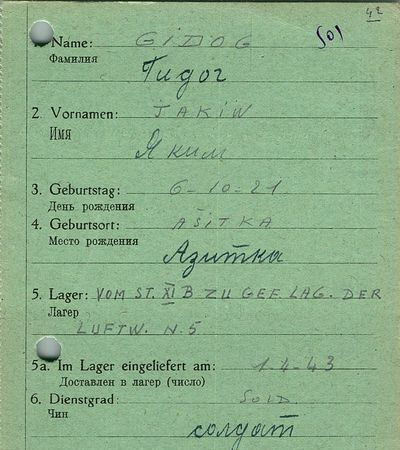 42
1. Name: GIDOG
501
Фамилия
Гидог
2. Vornamen: JAKIW
Имя
Яким
3. Geburtstag: 6-10-21
День рождения
4. Geburtsort: AŠITKA
Место рождения
Азитка
5. Lager: VOM ST. XI B ZU GEF LAG. DER
Лагер
LUFTW. N. 5
5a. Im Lager eingeliefert am: 1-4-43
Доставлен в лагер (число)
6. Dienstgrad: SOLD.
Чин
солдат